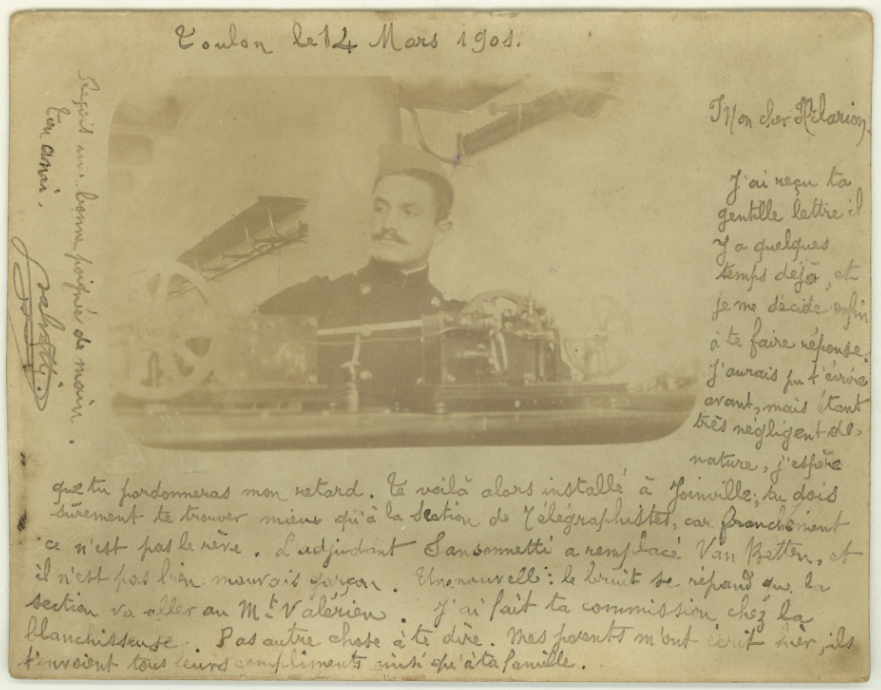 Toulon le 14 Mars 1901.
Mon cher Hilarion,
J'ai reçu ta
gentille lettre il
y a quelques
temps déjà, et
je me décide enfin
à te faire réponse.
J'aurais pu t'écrire
avant, mais étant
très négligent de
nature, j'espère
que tu pardonneras mon retard. Te voilà alors installé à Joinville; tu dois
sûrement te trouver mieux qu'à la Section de Télégraphistes, car franchement
ce n'est pas le rêve. L'adjudant Sansonnetti a remplacé Van Batten, et
il n'est pas bien mauvais garçon. Une nouvelle: le bruit se répand que la
section va aller au Mt. Valérien. J'ai fait ta commission chez la
blanchisseuse. Pas autre chose à te dire. Mes parents m'ont écrit hier, ils
t'envoient tous leurs compliments ainsi qu'à ta famille.
Reçois une bonne poignée de main.
ton ami.